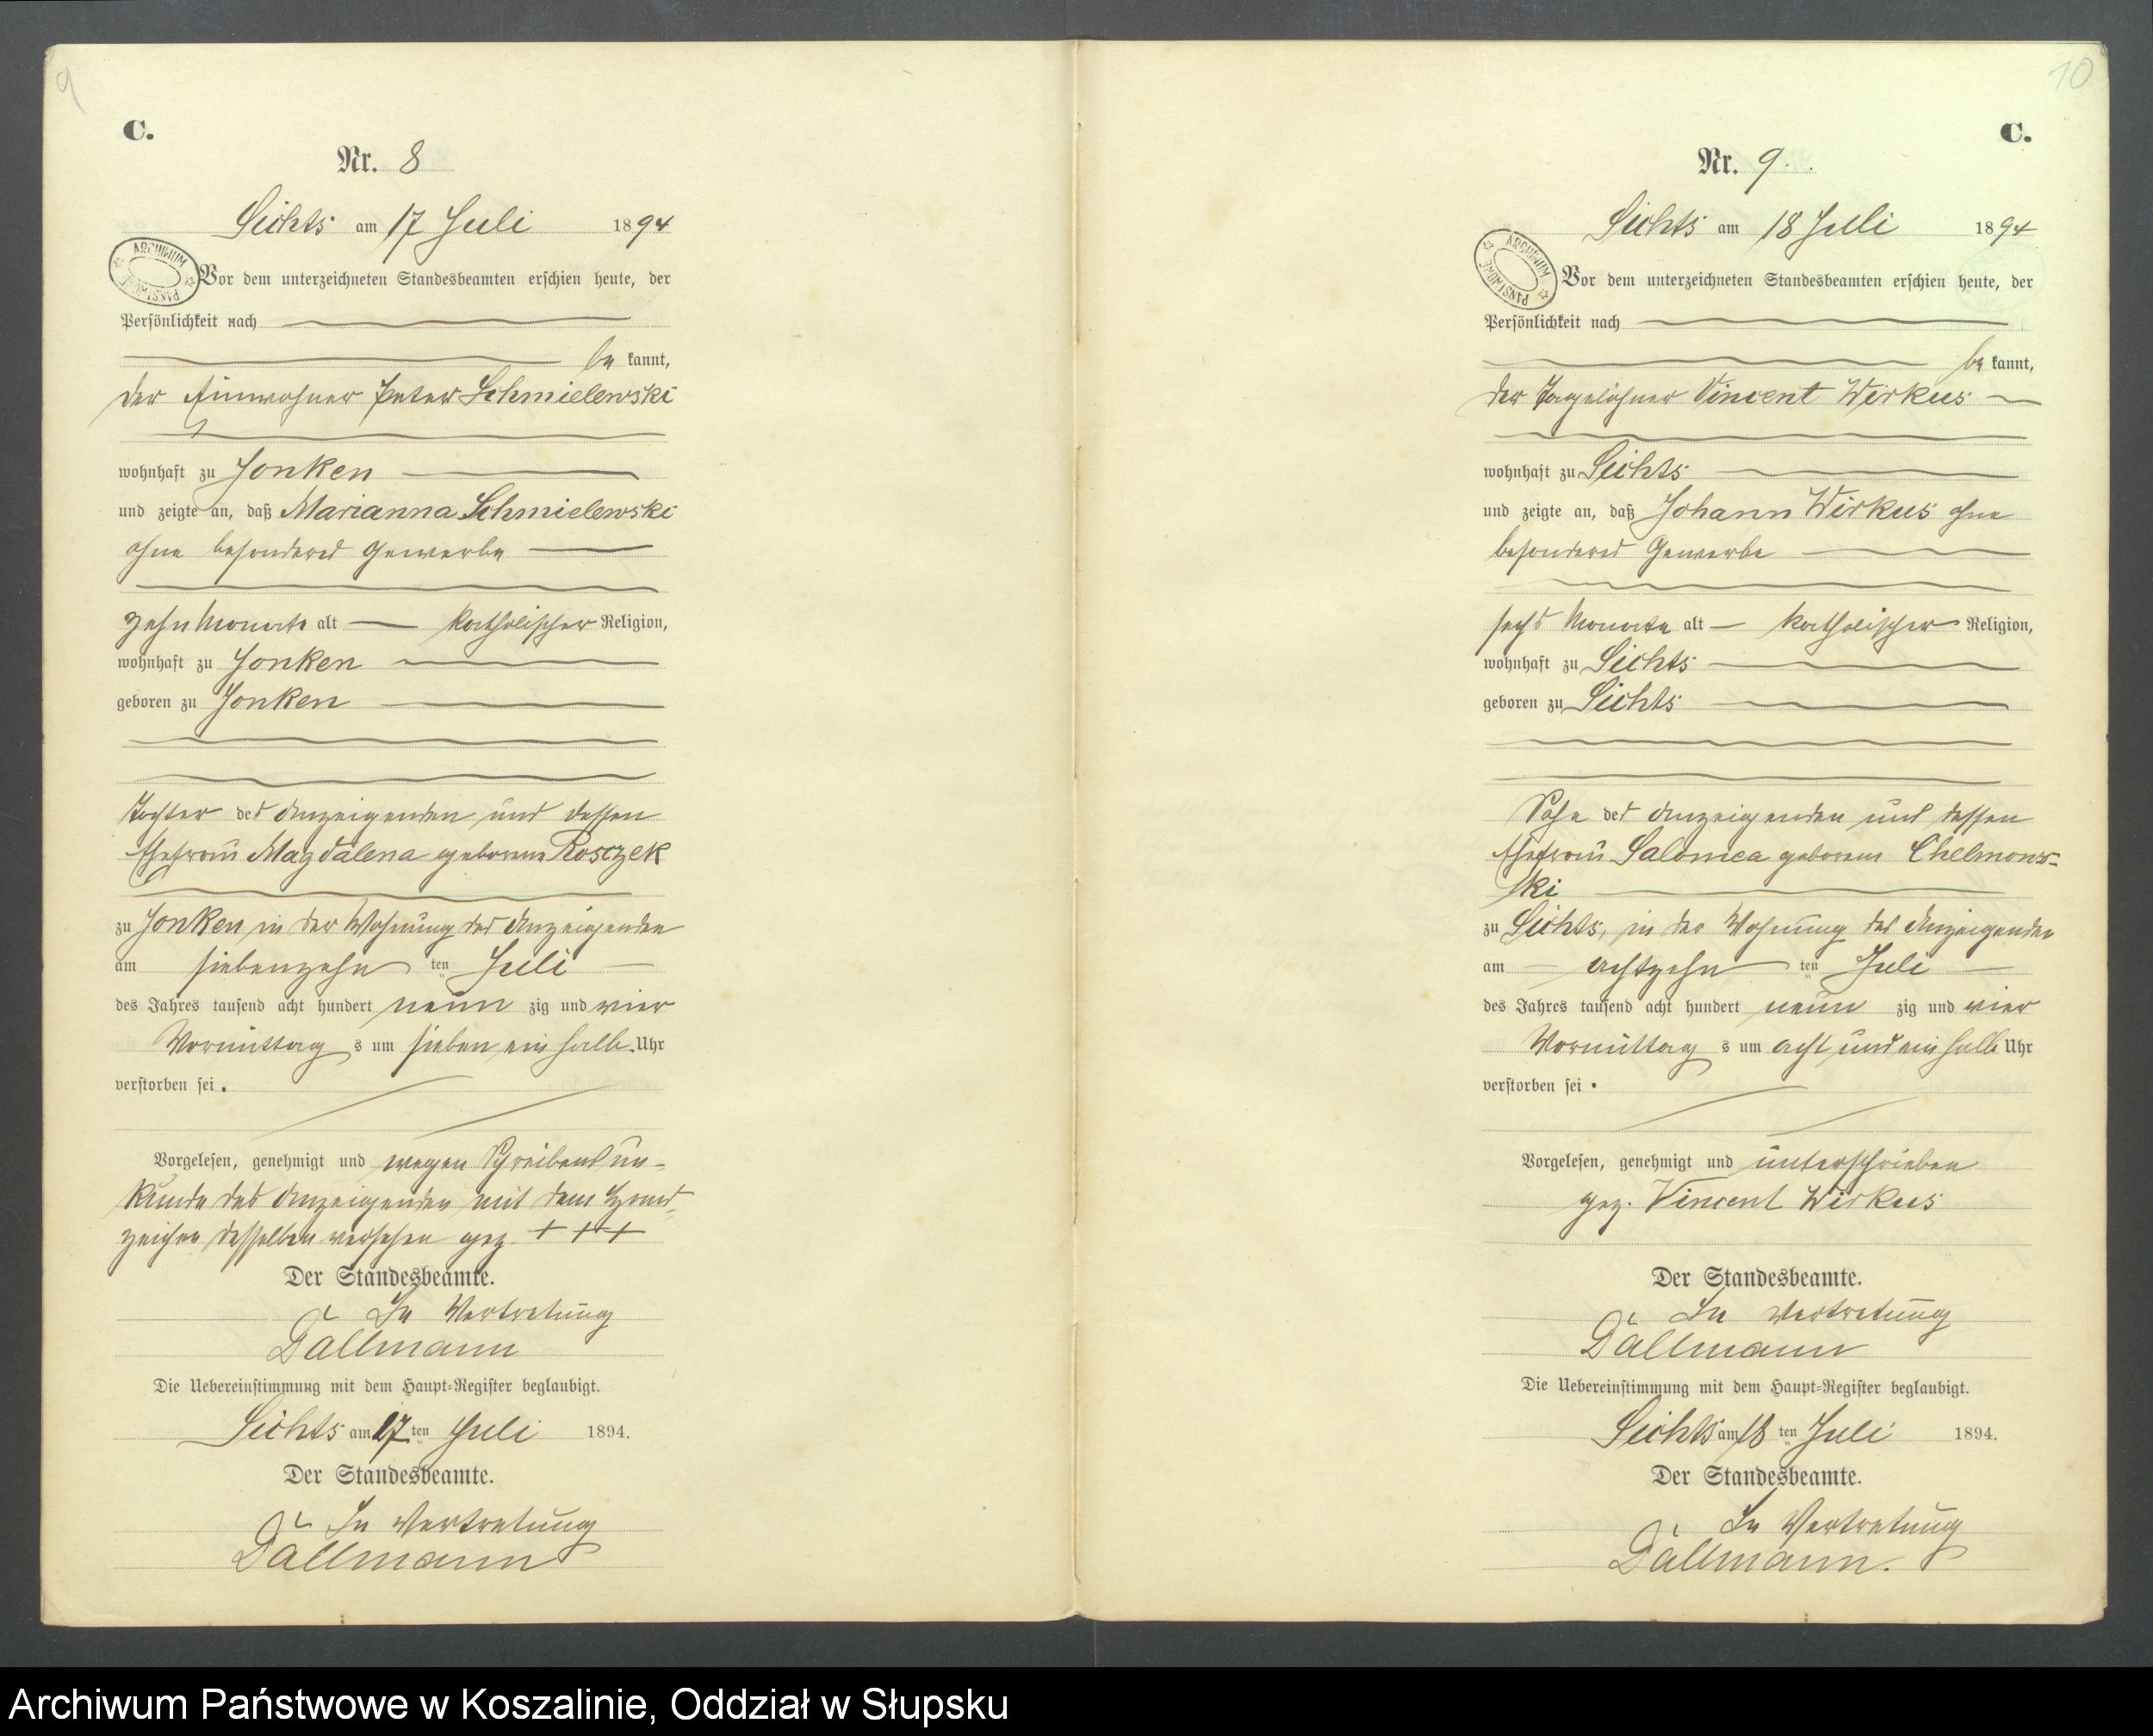 9
C.
Nr. 8
Sichts am 17 Juli 1894
ARCHIWUM PAŃSTWOWE
Vor dem unterzeichneten Standesbeamten erschien heute, der
Persönlichkeit nach
be kannt,
der Einwohner Peter Schmielewski
wohnhaft zu Jonken
und zeigte an, daß Marianna Schmielewski
ohne besonderes Gewerbe
zehn Monate alt katholischer Religion,
wohnhaft zu Jonken
geboren zu Jonken
Tochter des Anzeigenden und dessen
Ehefrau Magdalena geborene Rosczek
zu Jonken in der Wohnung des Anzeigenden
am siebenzehn ten Juli
des Jahres tausend acht hundert neun zig und vier
Vormittag s um sieben ein halb Uhr
verstorben sei.
Vorgelesen, genehmigt und wegen Schreibensun-
kunde des Anzeigenden mit dem Hand-
zeichen desselben versehen gez. + + +
Der Standesbeamte.
In Vertretung
Dallmann
Die Uebereinstimmung mit dem Haupt-Register beglaubigt.
Sichts am 17 ten Juli 1894.
Der Standesbeamte.
In Vertretung
Dallmann
10
C.
Nr. 9.
Sichts am 18 Juli 1894
ARCHIWUM PAŃSTWOWE
Vor dem unterzeichneten Standesbeamten erschien heute, der
Persönlichkeit nach
be kannt,
der Tagelöhner Vincent Wirkus
wohnhaft zu Sichts
und zeigte an, daß Johann Wirkus ohne
besonderes Gewerbe
sechs Monate alt katholischer Religion,
wohnhaft zu Sichts
geboren zu Sichts
Sohn des Anzeigenden und dessen
Ehefrau Salomea geborene Chelmows-
ski
zu Sichts, in der Wohnung des Anzeigenden
am achtzehn ten Juli
des Jahres tausend acht hundert neun zig und vier
Vormittag s um acht und ein halb Uhr
verstorben sei.
Vorgelesen, genehmigt und unterschrieben
gez. Vincent Wirkus
Der Standesbeamte.
In Vertretung
Dallmann
Die Uebereinstimmung mit dem Haupt-Register beglaubigt.
Sichts am 18 ten Juli 1894.
Der Standesbeamte.
In Vertretung
Dallmann.
Archiwum Państwowe w Koszalinie, Oddział w Słupsku